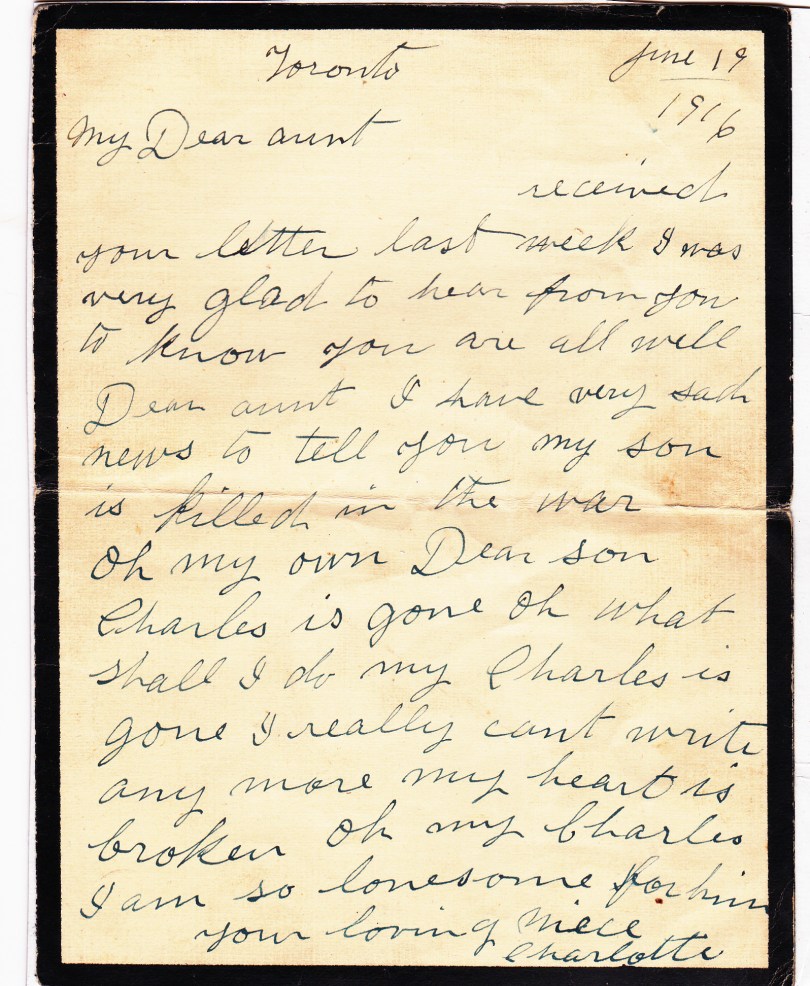 Toronto June 19
1916
My Dear aunt
received
your letter last week I was
very glad to hear from you
to know you are all well
Dear aunt I have very sad
news to tell you my son
is killed in the war
Oh my own Dear son
Charles is gone Oh what
shall I do my Charles is
gone I really cant write
any more my heart is
broken Oh my Charles
I am so lonesome for him
your loving niece
Charlotte